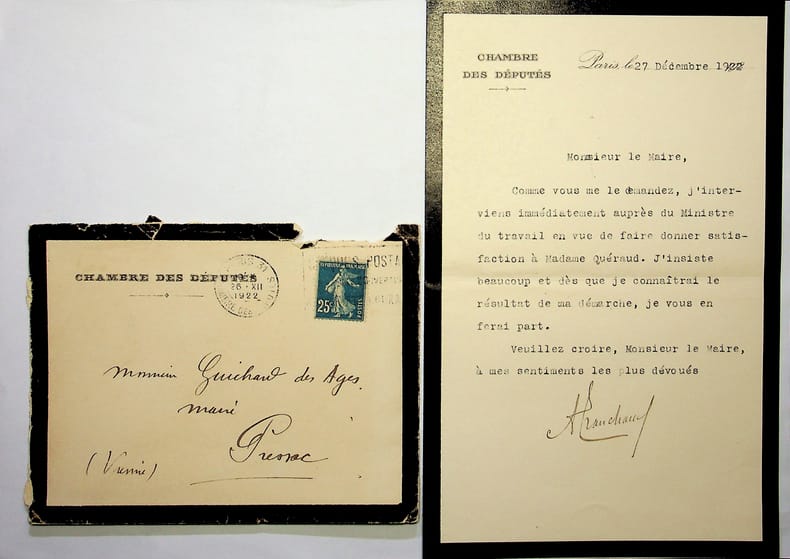 CHAMBRE
DES DÉPUTÉS
Paris, le 27 Décembre 1922
Monsieur le Maire,
Comme vous me le demandez, j'inter-
viens immédiatement auprès du Ministre
du travail en vue de faire donner satis-
faction à Madame Quéraud. J'insiste
beaucoup et dès que je connaîtrai le
résultat de ma démarche, je vous en
ferai part.
Veuillez croire, Monsieur le Maire,
à mes sentiments les plus dévoués
CHAMBRE DES DÉPUTÉS
26 · XII
1922
POSTA
25c
POSTES
Monsieur Guichard des Ages.
maire
Pressac
(Vienne)